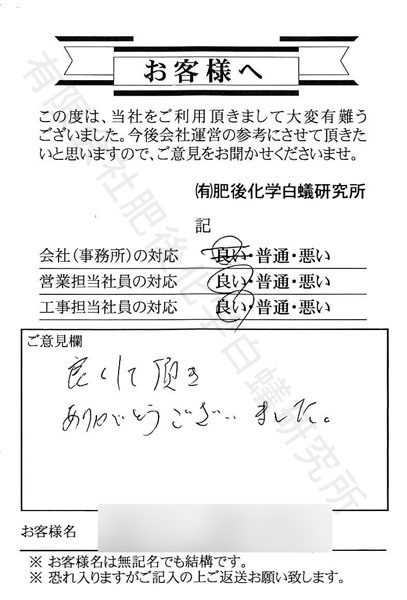 お客様へ
この度は、当社をご利用頂きまして大変有難う
ございました。今後会社運営の参考にさせて頂きた
いと思いますので、ご意見をお聞かせくださいませ。
㈲肥後化学白蟻研究所
記
会社(事務所)の対応 良い・普通・悪い
営業担当社員の対応 良い・普通・悪い
工事担当社員の対応 良い・普通・悪い
ご意見欄
良くして頂き
ありがとうございました。
お客様名
※ お客様名は無記名でも結構です。
※ 恐れ入りますがご記入の上ご返送お願い致します。
有限会社肥後化学白蟻研究所